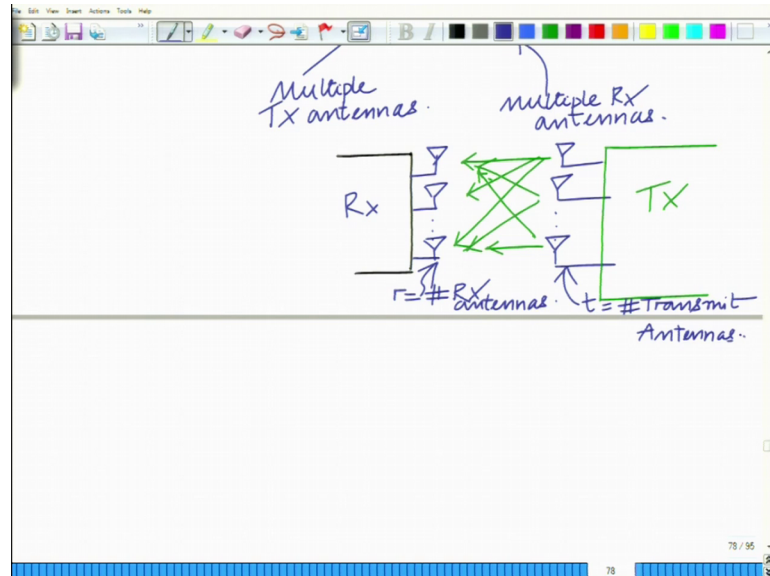 File Edit View Insert Actions Tools Help
B I
Multiple
TX antennas.
multiple RX
antennas.
Rx
TX
r = # RX
antennas.
t = # Transmit
Antennas..
78 / 95
78